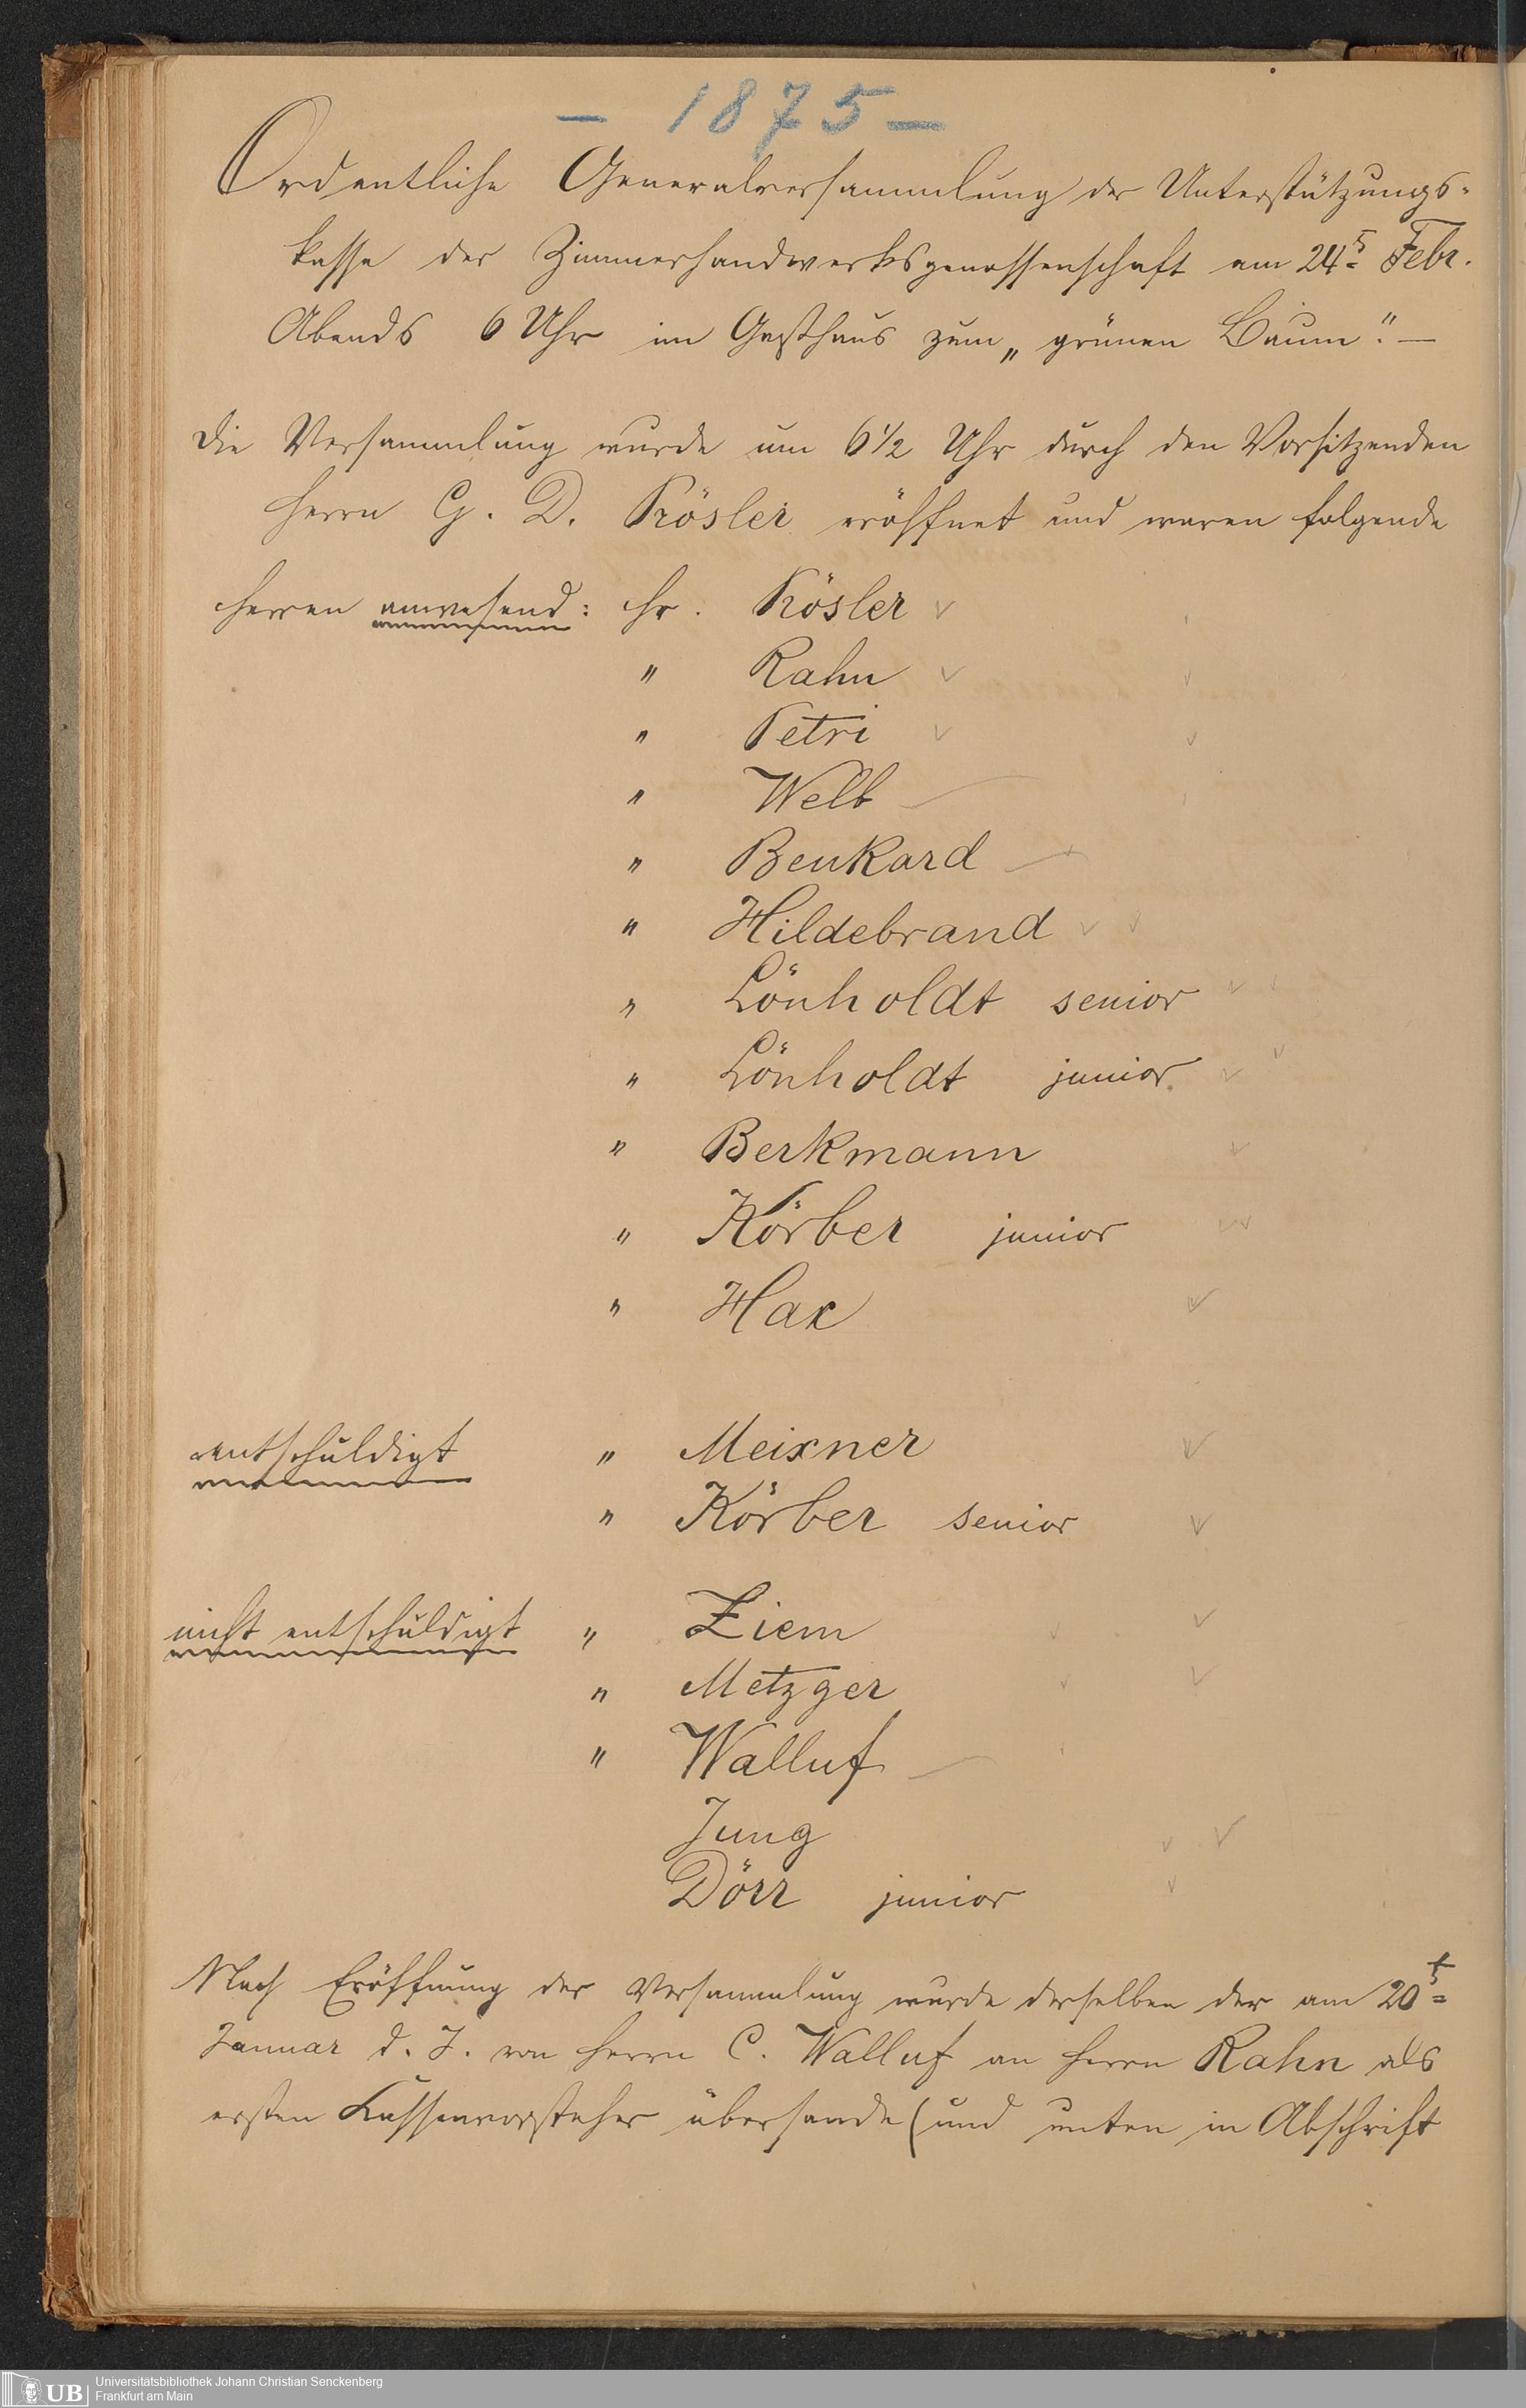 - 1875 -
Ordentliche Generalversammlung der Unterstützungs-
kasse der Zimmerhandwerksgenossenschaft am 24t Febr.
Abends 6 Uhr im Gasthaus zum „grünen Baum“. —
Die Versammlung wurde um 6½ Uhr durch den Vorsitzenden
Herrn G. D. Rösler eröffnet und waren folgende
Herren anwesend: Hr. Rösler
" Rahn
" Petri
" Welb
" Benkard
" Hildebrand
" Lönholdt senior
" Lönholdt junior
" Berkmann
" Körber junior
" Hax
entschuldigt " Meixner
" Körber senior
nicht entschuldigt " Ziem
" Metzger
" Walluf
Jung
Dörr junior
Nach Eröffnung der Versammlung wurde derselben der am 20t
Januar d. J. von Herrn C. Walluf an Herrn Rahn als
ersten Kassenvorsteher übersande (und unten in Abschrift
UB
Universitätsbibliothek Johann Christian Senckenberg
Frankfurt am Main